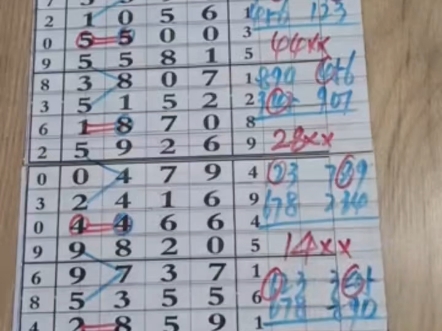 2 1 0 5 6 1
0 5 5 0 0 3
9 5 5 8 1 5 44xx
8 3 8 0 7 1
3 5 1 5 2 2 907
6 1 8 7 0 8
2 5 9 2 6 9 28xx
0 0 4 7 9 4 123 789
3 2 4 1 6 9 678 234
0 4 4 6 6 4
9 9 8 2 0 5 14xx
6 9 7 3 7 1 123
8 5 3 5 5 6 678 890
4 2 8 5 9 1